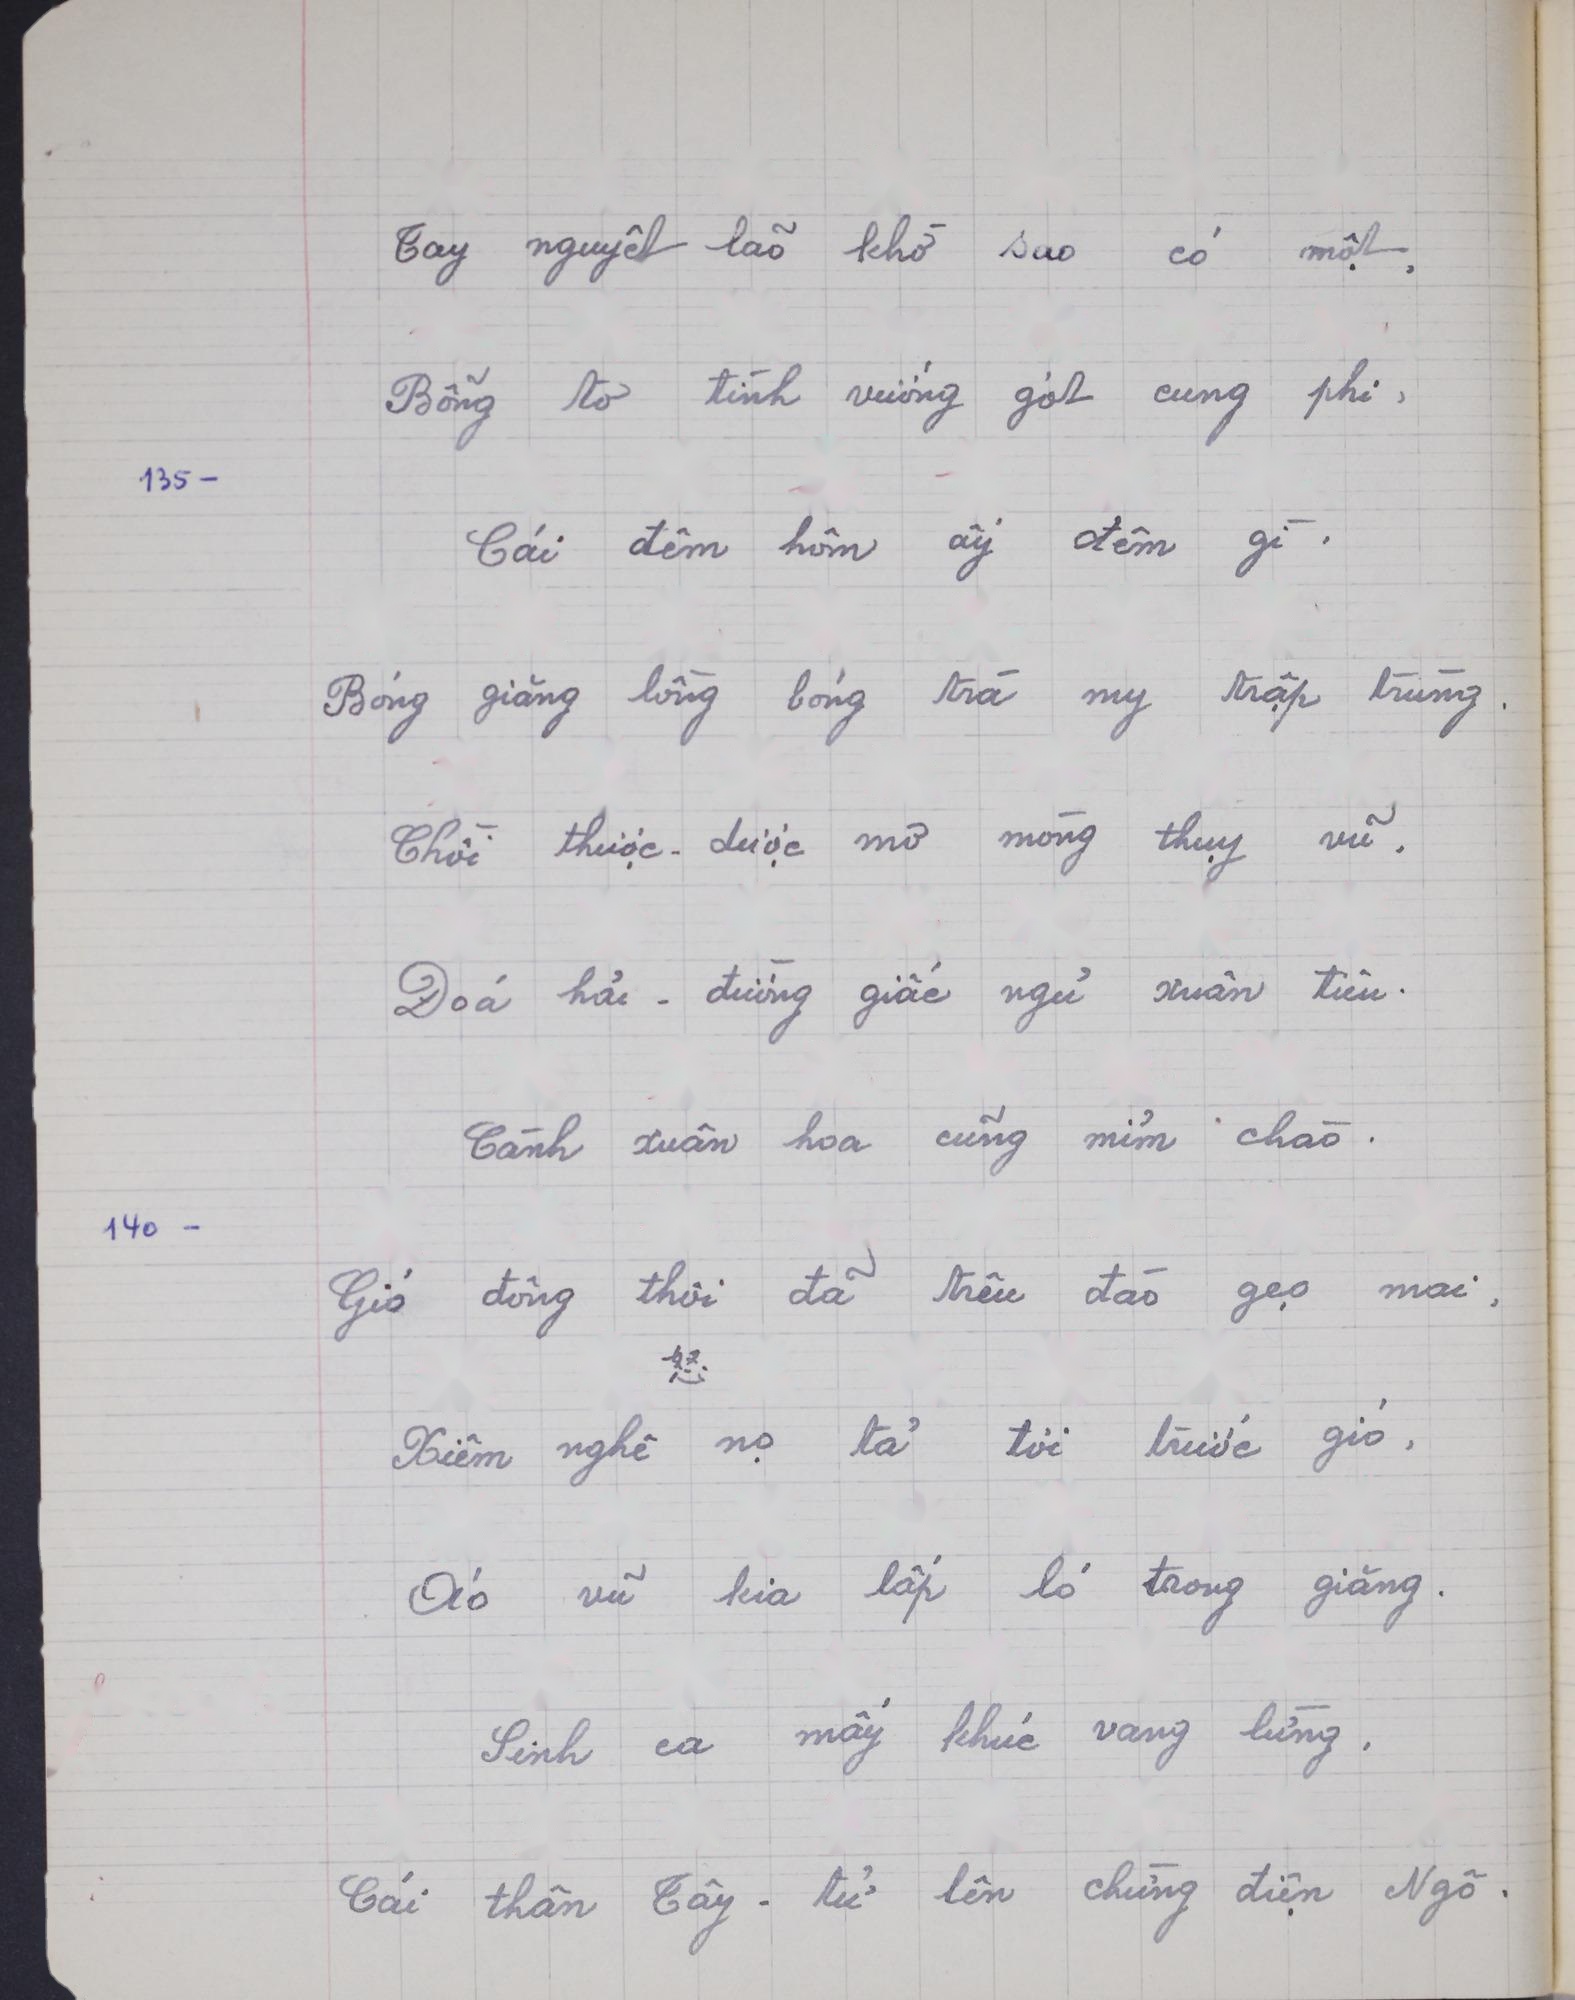 Tay nguyệt lão khờ sao có một,
Bỗng tơ tình vướng gót cung phi,
135-
Cái đêm hôm ấy đêm gì.
Bóng giăng lồng bóng trà my trập trùng.
Chồi thược-dược mơ mòng thụy vũ.
Đoá hải-đường giấc ngủ xuân tiêu.
Cành xuân hoa cũng mỉm chào.
140 -
Gió đông thôi đã trêu đào gẹo mai,
Xiêm nghê nọ tả tơi trước gió,
Áo vũ kia lấp ló trong giăng.
Sinh ca mấy khúc vang lừng,
Cái thân Tây-tử lên chừng điện Ngô.